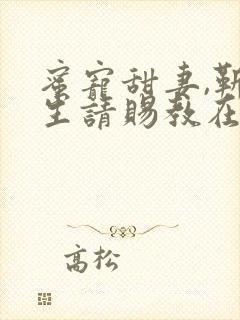 蜜寵甜妻,靳
生請賜教在
高松